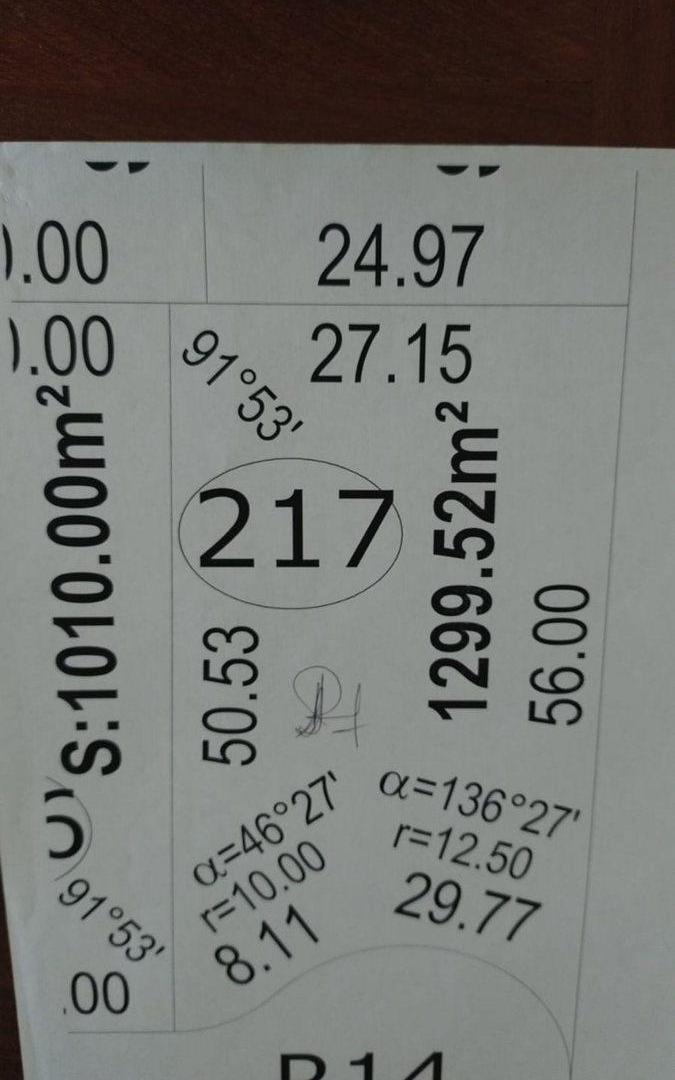 .00
24.97
.00
27.15
91°53'
S:1010.00m²
217
1299.52m²
50.53
56.00
α=46°27'
r=10.00
8.11
α=136°27'
r=12.50
29.77
91°53'
.00